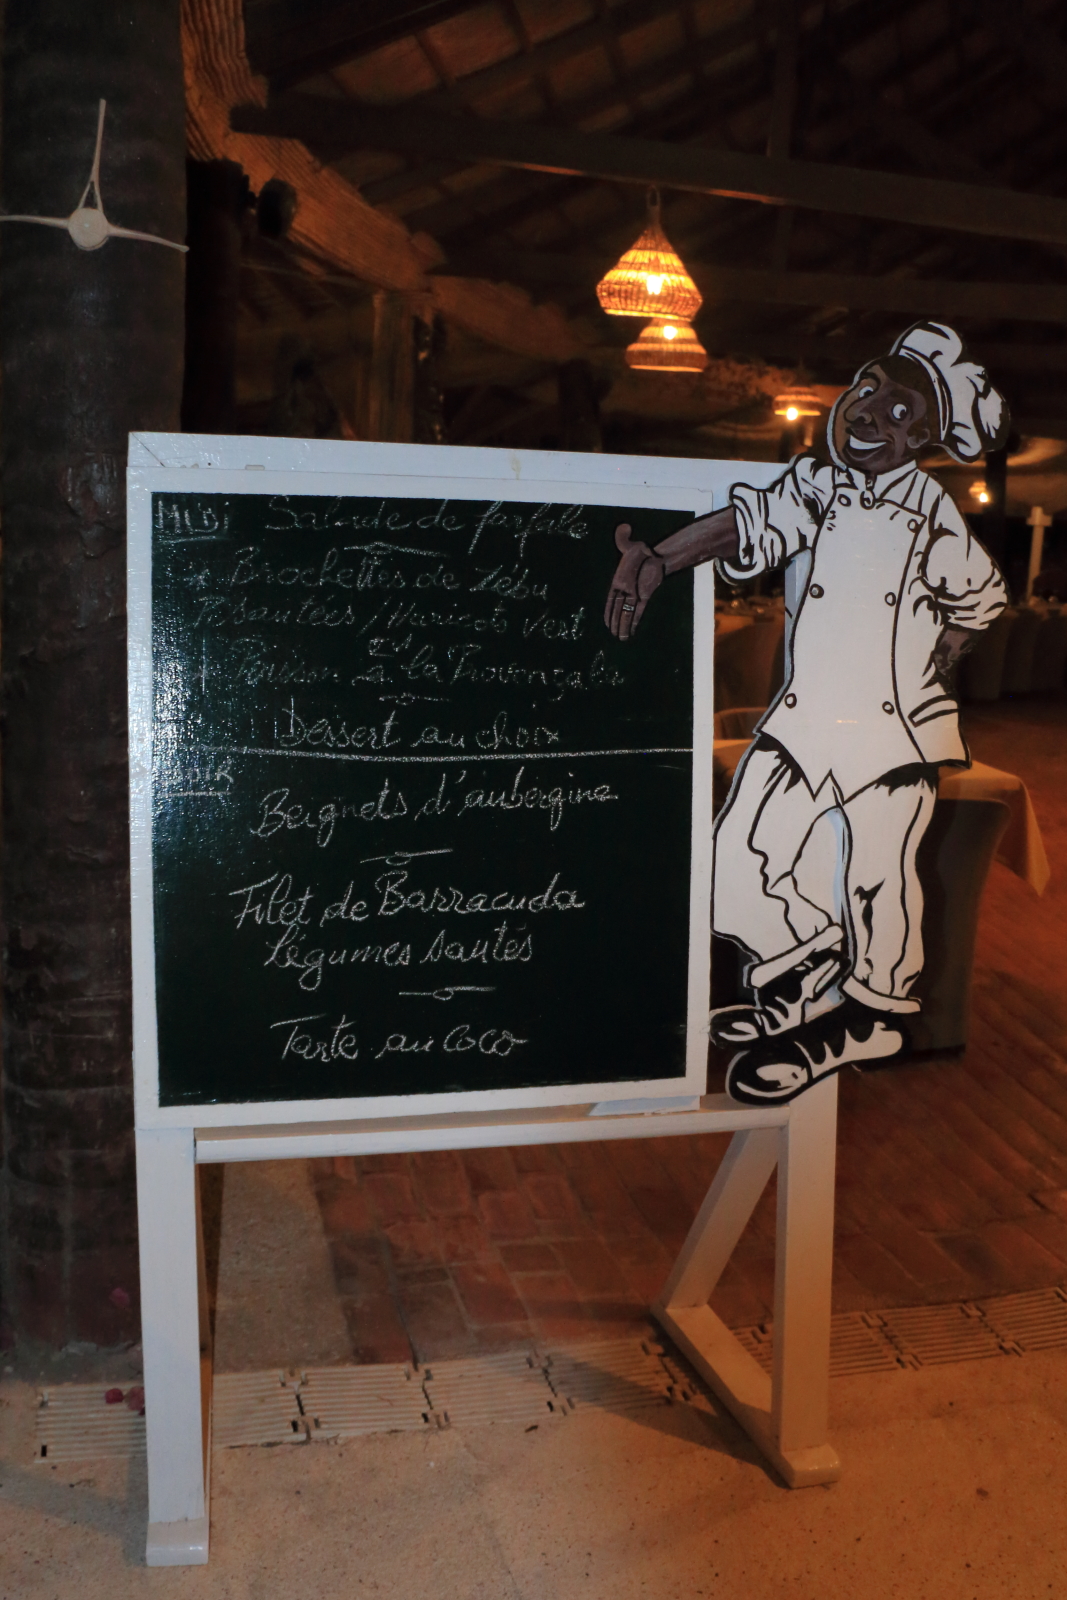 Midi Salade de farfale
Brochettes de Zébu
P. sautées / Haricots vert
ou
Poisson à la Provençale
Dessert au choix
Soir
Beignets d'aubergine
Filet de Barracuda
Légumes sautés
Tarte au Coco